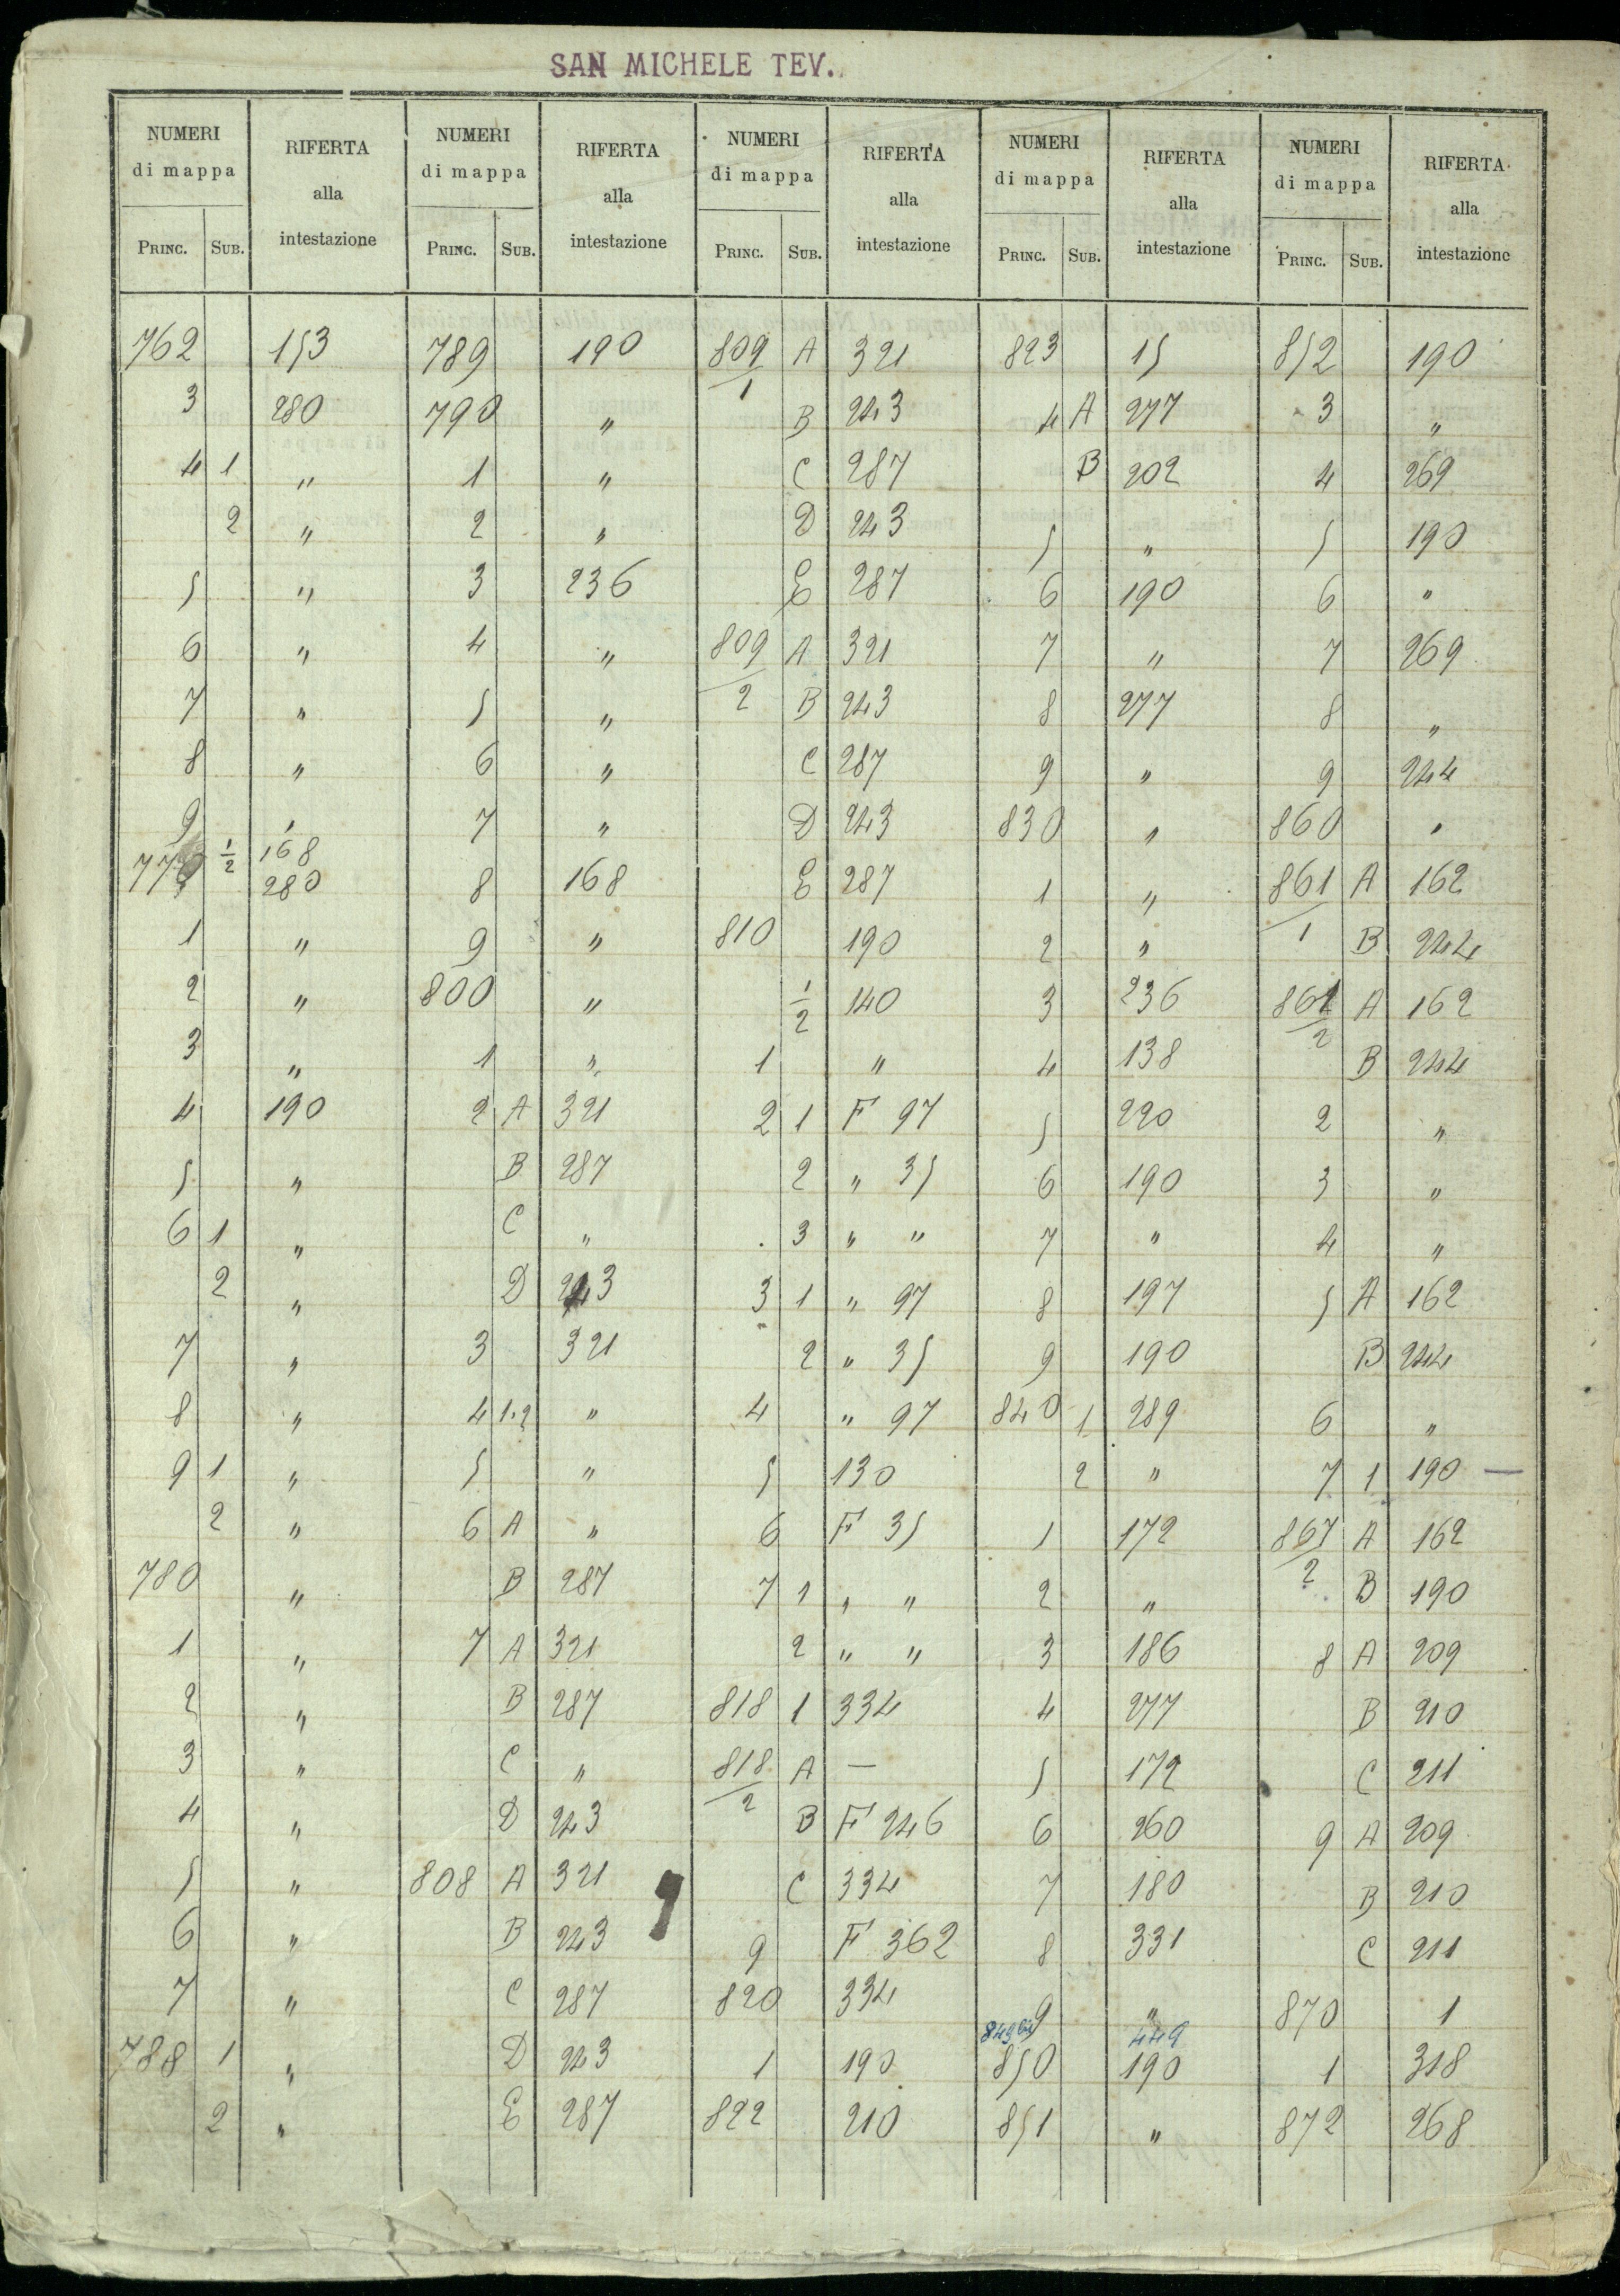 SAN MICHELE TEV.
NUMERI di mappa | RIFERTA alla intestazione | NUMERI di mappa | RIFERTA alla intestazione | NUMERI di mappa | RIFERTA alla intestazione | NUMERI di mappa | RIFERTA alla intestazione | NUMERI di mappa | RIFERTA alla intestazione
PRINC. | SUB. | PRINC. | SUB. | PRINC. | SUB. | PRINC. | SUB. | PRINC. | SUB.
762 | | 153 | 789 | | 190 | 809/1 | A | 321 | 823 | | 15 | 852 | | 190
3 | | 280 | 790 | | " | | B | 243 | 4 | A | 277 | 3 | | "
4 | 1 | " | 1 | | " | | C | 287 | | B | 202 | 4 | | 269
| 2 | " | 2 | | " | | D | 243 | 5 | | " | 5 | | 190
5 | | " | 3 | | 236 | | E | 287 | 6 | | 190 | 6 | | "
6 | | " | 4 | | " | 809/2 | A | 321 | 7 | | " | 7 | | 269
7 | | " | 5 | | " | | B | 243 | 8 | | 277 | 8 | | "
8 | | " | 6 | | " | | C | 287 | 9 | | " | 9 | | 244
9 | | " | 7 | | " | | D | 243 | 830 | | " | 860 | | "
770 | 1/2 | 168 280 | 8 | | 168 | | E | 287 | 1 | | " | 861/1 | A | 162
1 | | " | 9 | | " | 810 | | 190 | 2 | | " | | B | 244
2 | | " | 800 | | " | | 1/2 | 140 | 3 | | 236 | 861/2 | A | 162
3 | | " | 1 | | " | 1 | | " | 4 | | 138 | | B | 244
4 | | 190 | 2 | A | 321 | 2 | 1 | F 97 | 5 | | 220 | 2 | | "
5 | | " | | B | 287 | | 2 | " 35 | 6 | | 190 | 3 | | "
6 | 1 | " | | C | " | | 3 | " " | 7 | | " | 4 | | "
| 2 | " | | D | 243 | 3 | 1 | " 97 | 8 | | 197 | 5 | A | 162
7 | | " | 3 | | 321 | | 2 | " 35 | 9 | | 190 | | B | 244
8 | | " | 4 | 1.2 | " | 4 | | " 97 | 840 | 1 | 289 | 6 | | "
9 | 1 | " | 5 | | " | 5 | | 130 | | 2 | " | 7 | 1 | 190 —
| 2 | " | 6 | A | " | 6 | | F 35 | 1 | | 172 | 867/2 | A | 162
780 | | " | | B | 287 | 7 | 1 | " " | 2 | | " | | B | 190
1 | | " | 7 | A | 321 | | 2 | " " | 3 | | 186 | 8 | A | 209
2 | | " | | B | 287 | 818 | 1 | 334 | 4 | | 277 | | B | 210
3 | | " | | C | " | 818/2 | A | — | 5 | | 172 | | C | 211
4 | | " | | D | 243 | | B | F 246 | 6 | | 260 | 9 | A | 209
5 | | " | 808 | A | 321 | | C | 334 | 7 | | 180 | | B | 210
6 | | " | | B | 243 | 9 | | F 362 | 8 | | 331 | | C | 211
7 | | " | | C | 287 | 820 | | 334 | 9 | | " | 870 | | 1
849 bis | | 449
788 | 1 | " | | D | 243 | 1 | | 190 | 850 | | 190 | 1 | | 318
| 2 | " | | E | 287 | 822 | | 210 | 851 | | " | 872 | | 268